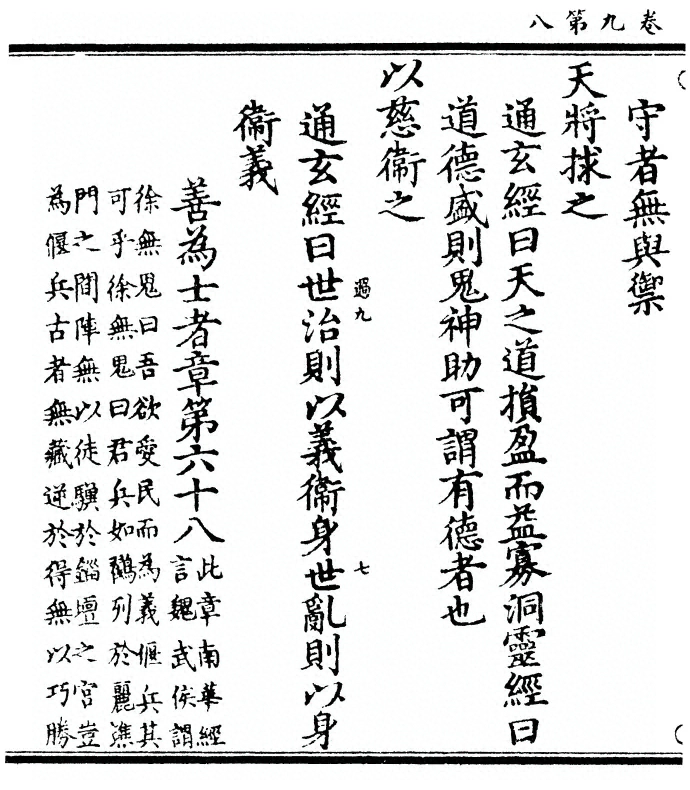 卷九第八
守者無與禦
天將捄之
通玄經曰天之道損盈而益寡洞靈經曰
道德盛則鬼神助可謂有德者也
以慈衞之
過九
七
通玄經曰世治則以義衞身世亂則以身
衞義
善為士者章第六十八
此章南華經
言魏武侯謂
徐無鬼曰吾欲愛民而為義偃兵其
可乎徐無鬼曰君兵如鶴列於麗譙
門之間陣無以徒驥於錙壇之宮豈
為偃兵古者無藏逆於得無以巧勝